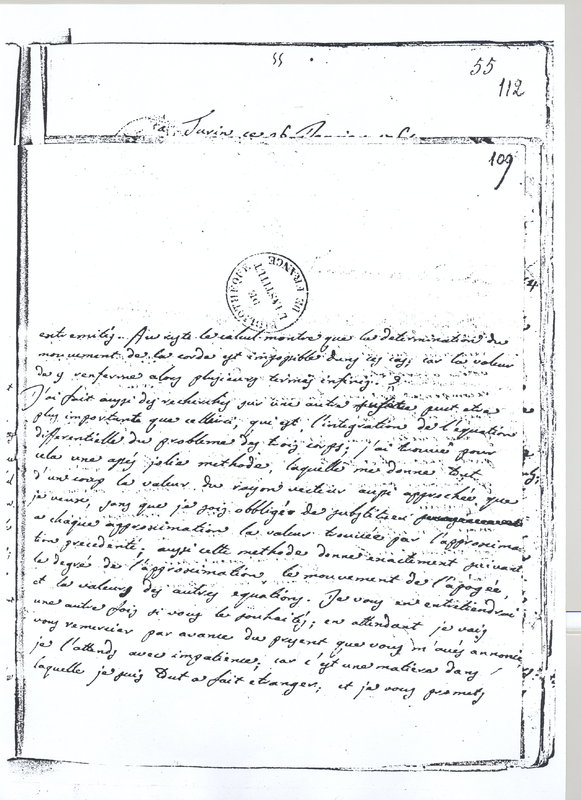 55
55
112
Turin ce
109
BIBLIOTHEQUE
DE
L'INSTITUT
DE FRANCE
extremités. Au reste le calcul montre que la determination du
mouvement de la corde est impossible dans ces cas, car la valeur
de y renferme alors plusieurs termes infinis.
J'ai fait aussi des recherches sur une autre peut etre
plus importante que celle ci, qui est l'integration de l'equation
differentielle du probleme des trois corps; j'ai trouvé pour
cela une assés jolie methode, laquelle me donne tout
d'un coup la valeur du rayon vecteur aussi approchée que
je veux, sans que je sois obbligé de substituer
a chaque approximation la valeur trouvée par l'approxima-
tion precedente; aussi cette methode donne exactement suivant
le degré de l'approximation le mouvement de l'apogée,
et la valeur des autres equations. Je vous en entretiendrai
une autre fois si vous le souhaités; en attendant je vais
vous remercier par avance du present que vous m'avés annoncé,
je l'attends avec impatience, car c'est une matiere dans
laquelle je suis tout a fait etranger; et je vous promets